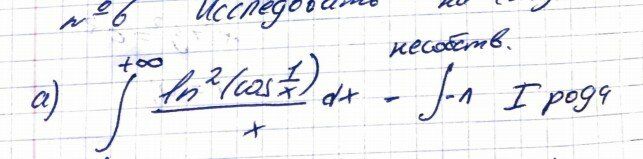 №6 Исследовать на
несобств.
а) ∫^{+∞} ln²(cos 1/x)/x dx - ∫-л I рода